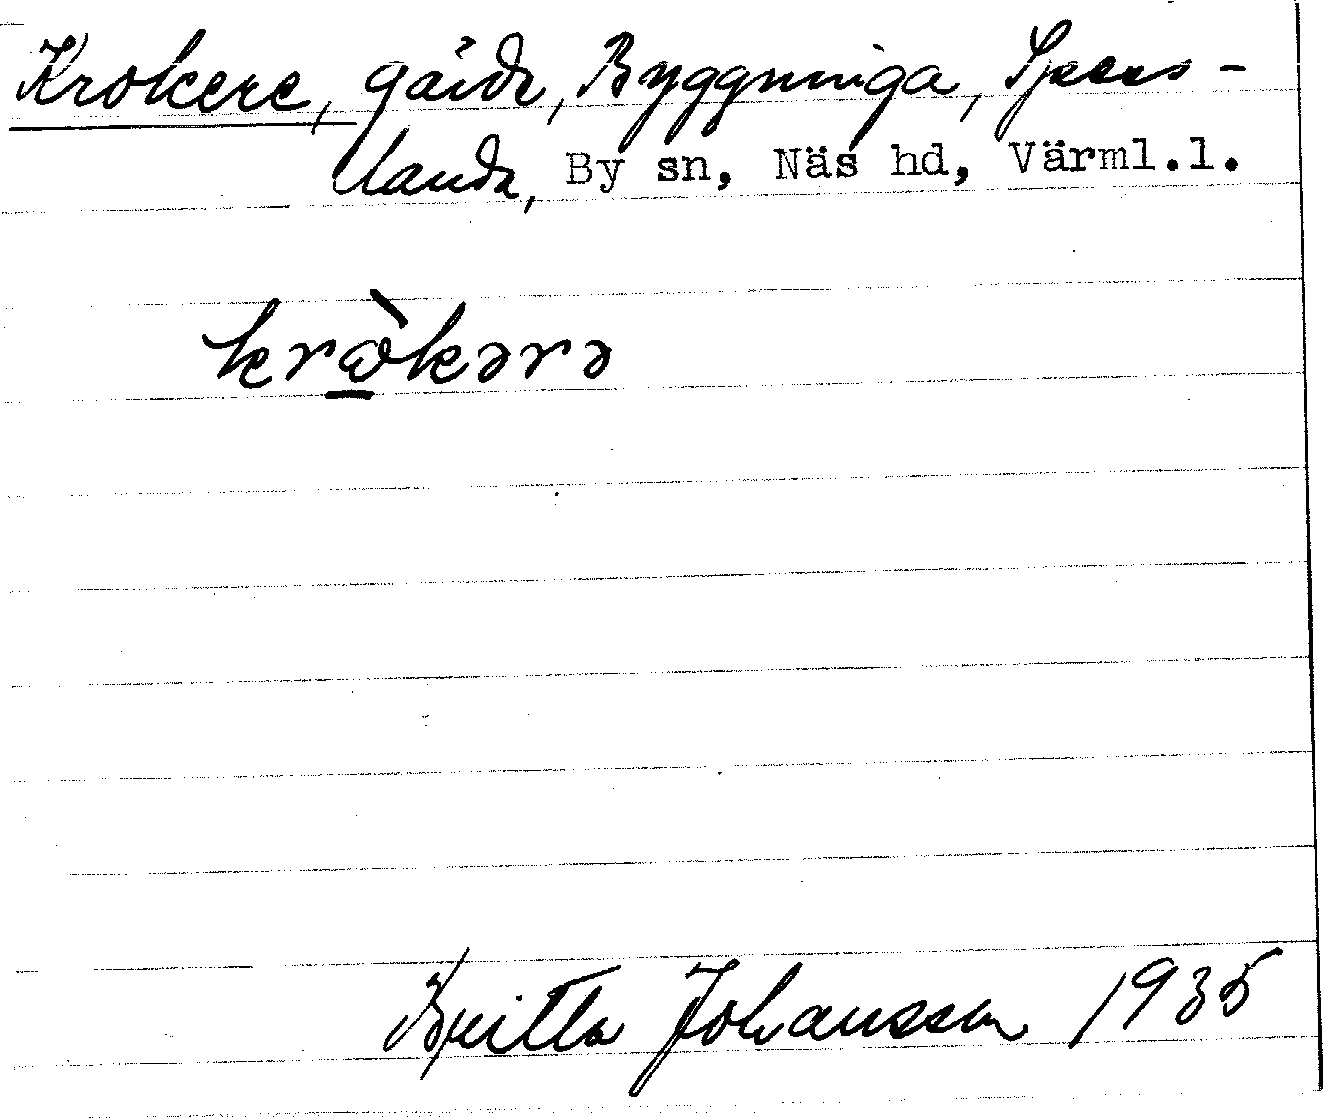 Krokere, gård, Byggninga,
Uanda, By sn, Näs hd, Värml.l.
krὼ̲kərə
Britta Johansson 1935